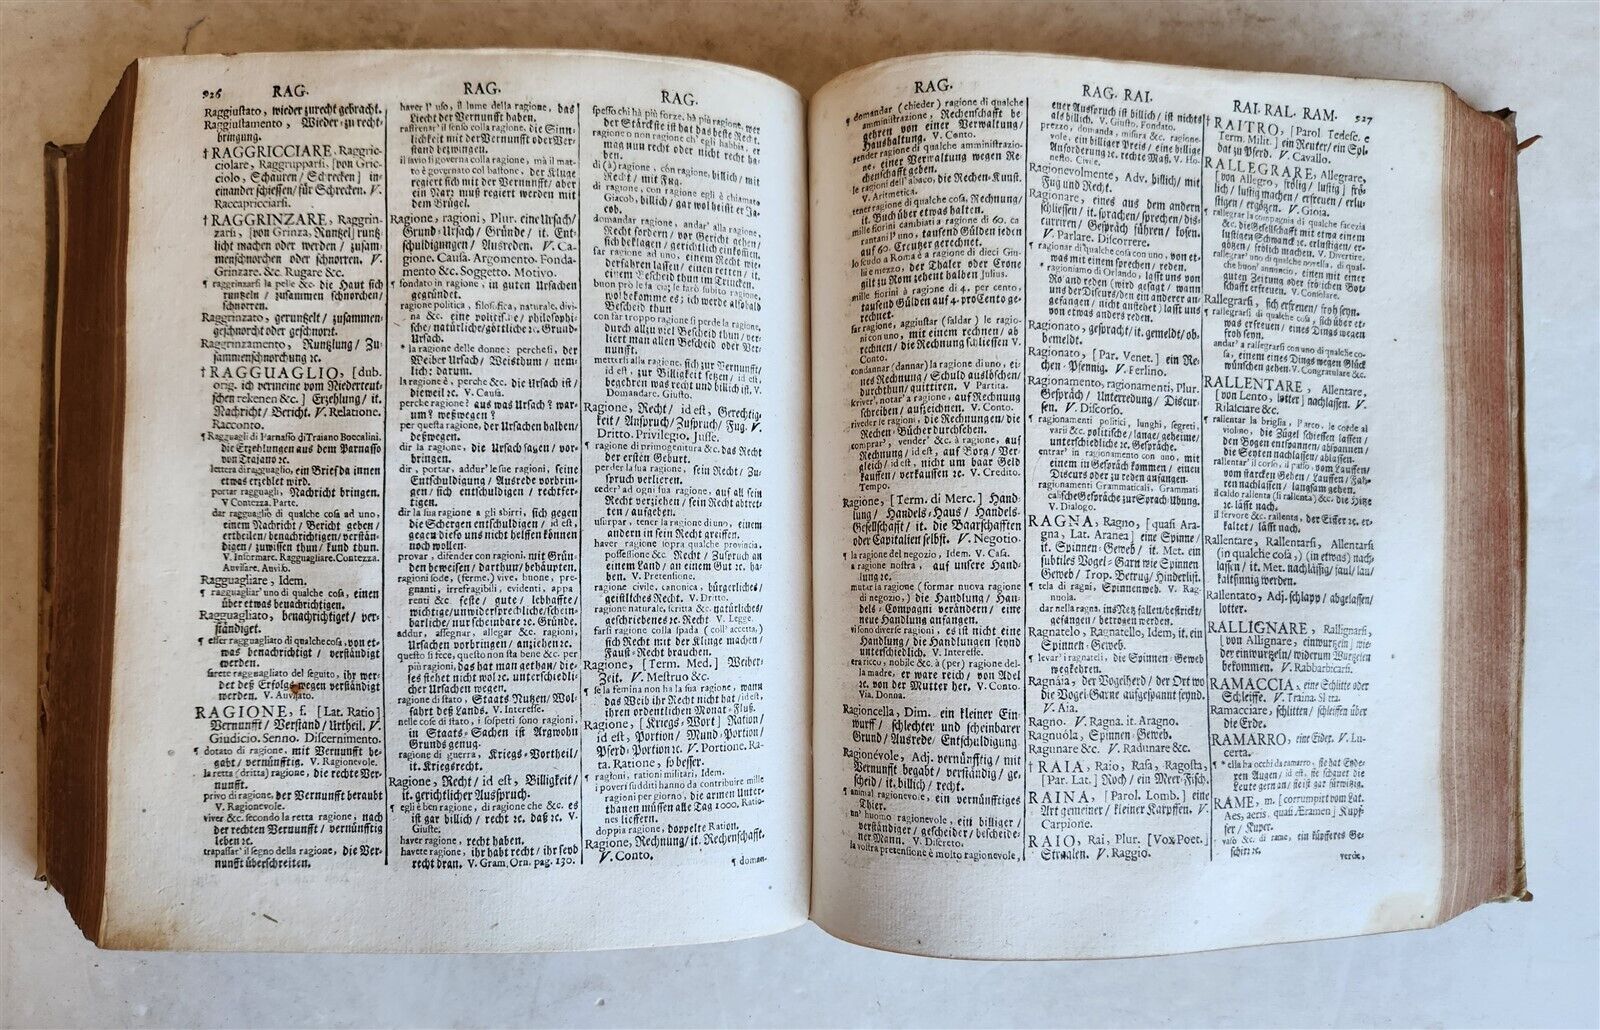 926 RAG. RAG. RAG.
Raggiustato, wieder zurecht gebracht.
Raggiustamento, Wieder-zu recht-
bringung.
† RAGGRICCIARE, Raggric-
ciolare, Raggrupparsi, [von Gric-
ciolo, Schauren/ Schrecken] in-
einander schiessen/ für Schrecken. V.
Raccapricciarsi.
† RAGGRINZARE, Raggrin-
zarsi, [von Grinza, Runtzel] runtz-
licht machen oder werden/ zusam-
menschnorchen oder schnorren. V.
Grinzare. &c. Rugare &c.
¶ raggrinzarsi la pelle &c. die Haut sich
runtzeln/ zusammen schnorchen/
schnorren.
Raggrinzato, geruntzelt/ zusammen-
geschnorcht oder geschnort.
Raggrinzamento, Runtzlung/ Zu-
sammenschnorchung ꝛc.
† RAGGUAGLIO, [dub.
orig. ich vermeine vom Niederteut-
schen rekenen &c.] Erzehlung/ it.
Nachricht/ Bericht. V. Relatione.
Racconto.
¶ Ragguagli di Parnasso di Traiano Boccalini.
die Erzehlungen aus dem Parnasso
von Trajano ꝛc.
lettera di ragguaglio, ein Brief da innen
etwas erzehlt wird.
portar ragguagli, Nachricht bringen.
V Contezza. Parte.
dar ragguaglio di qualche cosa ad uno,
einem Nachricht/ Bericht geben/
ertheilen/ benachrichtigen/ verstän-
digen/ zuwissen thun/ kund thun.
V. Informare. Ragguagliare. Contezza.
Avvisare. Avviso.
Ragguagliare, Idem.
¶ ragguagliar' uno di qualche cosa, einen
über etwas benachrichtigen.
Ragguagliato, benachrichtiget/ ver-
ständiget.
¶ esser ragguagliato di qualche cosa, von et-
was benachrichtigt/ verständigt
werden.
sarete ragguagliato del seguito, ihr wer-
det deß Erfolgs wegen verständigt
werden. V. Avvisato.
RAGIONE, f. [Lat. Ratio]
Vernunfft/ Verstand/ Urtheil. V.
Giudicio. Senno. Discernimento.
¶ dotato di ragione, mit Vernunfft be-
gabt/ vernünfftig. V. Ragionevole.
la retta (dritta) ragione, die rechte Ver-
nunfft.
privo di ragione, der Vernunfft beraubt
V. Ragionevole.
viver &c. secondo la retta ragione, nach
der rechten Vernunfft/ vernünfftig
leben ꝛc.
trapassar' il segno della ragione, die Ver-
nunfft überschreiten.
haver l' uso, il lume della ragione, das
Liecht der Vernunfft haben.
raffrenar' il senso colla ragione, die Sinn-
lichkeit mit der Vernunfft oder Ver-
stand bezwingen.
il savio si governa colla ragione, mà il mat-
to è governato col bastone, der Kluge
regiert sich mit der Vernunfft/ aber
ein Narz muß regiert werden mit
dem Brügel.
Ragione, ragioni, Plur. eine Ursach/
Grund-Ursach/ Gründe/ it. Ent-
schuldigungen/ Ausreden. V. Ca-
gione. Causa. Argomento. Fonda-
mento &c. Soggetto. Motivo.
¶ fondato in ragione, in guten Ursachen
gegründet.
ragione politica, filosofica, naturale, divi-
na &c. eine politische/ philosophi-
sche/ natürliche/ göttliche ꝛc. Grund-
Ursach.
* la ragione delle donne: perchesi, der
Weiber Ursach/ Weisthum/ nem-
lich: darum.
la ragione è, perche &c. die Ursach ist/
dieweil ꝛc. V. Causa.
perche ragione? aus was Ursach? war-
um? weßwegen?
per questa ragione, der Ursachen halben/
deßwegen.
dir la ragione, die Ursach sagen/ vor-
bringen.
dir, portar, addur' le sue ragioni, seine
Entschuldigung/ Ausrede vorbrin-
gen/ sich entschuldigen/ rechtfer-
tigen.
dir la sua ragione a gli sbirri, sich gegen
die Schergen entschuldigen/ id est,
gegen diese uns nicht helffen können
noch wollen.
provar, difender con ragioni, mit Grün-
den beweisen/ darthun/ behaupten.
ragioni sode, (ferme,) vive, buone, pre-
gnanti, irrefragibili, evidenti, appa
renti &c. feste/ gute/ lebhaffte/
wichtige/ unwidersprechliche/ schein-
barliche/ nur scheinbare ꝛc. Gründe.
addur, assegnar, allegar &c. ragioni,
Ursachen vorbringen/ anziehen ꝛc.
questo si fece, questo non sta bene &c. per
più ragioni, das hat man gethan/ die-
ses stehet nicht wol ꝛc. unterschiedli-
cher Ursachen wegen.
ragione di stato, Staats Nutzen/ Wol-
fahrt deß Lands. V. Interesse.
nelle cose di stato, i sospetti sono ragioni,
in Staats-Sachen ist Argwohn
Grunds genug.
ragione di guerra, Kriegs-Vortheil/
it. Kriegsrecht.
Ragione, Recht/ id est, Billigkeit/
it. gerichtlicher Ausspruch.
¶ egli è ben ragione, di ragione che &c. es
ist gar billich/ recht ꝛc. daß ꝛc. V.
Giuste.
haver ragione, recht haben.
havete ragione, ihr habt recht/ ihr seyd
recht dran. V. Gram. Orn. pag. 130.
spesso chi hà più forze, hà più ragione, wer
der Stärckste ist hat das beste Recht.
ragione o non ragione ch' egli habbia, er
mag nun recht oder nicht recht ha-
ben.
di (à) ragione, con ragione, billich/ mit
Recht/ mit Fug.
di ragione, con ragione egli è chiamato
Giacob, billich/ gar wol heist er Ja-
cob.
domandar ragione, andar' alla ragione,
Recht fordern/ vor Gericht gehen/
sich beklagen/ gerichtlich einkommen.
far ragione ad uno, einem Recht wie-
derfahren lassen/ einen retten/ it.
einem Bescheid thun im Trincken.
buon prò le faccia; le farò subito ragione,
wol bekomme es; ich werde alsobald
Bescheid thun
con far troppo ragione si perde la ragione,
durch allzu viel Bescheid thun/ ver-
liert man allen Bescheid oder Ver-
nunfft.
mettersi alla ragione, sich zur Vernunfft/
id est, zur Billigkeit setzen/ id est,
begehren was recht und billich ist. V.
Domandare. Giusto.
Ragione, Recht/ id est, Gerechtig-
keit/ Anspruch/ Zuspruch/ Fug. V.
Dritto. Privilegio. Juste.
¶ ragione di primogenitura &c. das Recht
der ersten Geburt.
perder la sua ragione, sein Recht/ Zu-
spruch verlieren.
ceder' ad ogni sua ragione, auf all sein
Recht verziehen/ sein Recht abtret-
ten/ aufgeben.
usurpar, tener la ragione di uno, einem
andern in sein Recht greiffen.
haver ragione sopra qualche provincia,
possessione &c. Recht/ Zuspruch an
einem Land/ an einem Gut ꝛc. ha-
ben. V. Pretensione.
ragione civile, canonica, bürgerliches/
geistliches Recht. V. Dritto.
ragione naturale, scritta &c. natürliches/
geschriebenes ꝛc. Recht V. Legge.
farsi ragione colla spada (coll' accetta,)
sich Recht mit der Klinge machen/
Faust-Recht brauchen.
Ragione, [Term. Med.] Weiber-
Zeit. V. Mestruo &c.
¶ se la femina non ha la sua ragione, wann
das Weib ihr Recht nicht hat/ id est,
ihren ordentlichen Monat-Fluß.
Ragione, [Kriegs-Wort] Ration/
id est, Portion/ Mund-Portion/
Pferd-Portion ꝛc. V. Portione. Ra-
ta. Ratione, so besser.
¶ ragioni, rationi militari, Idem.
i poveri sudditi hanno da contribuire mille
ragioni per giorno, die armen Unter-
thanen müssen alle Tag 1000. Ratio-
nes lieffern.
doppia ragione, doppelte Ration.
Ragione, Rechnung/ it. Rechenschafft.
V. Conto.
¶ doman-
RAG. RAG. RAI. RAI. RAL. RAM. 927
¶ domandar (chieder) ragione di qualche
amministrazione, Rechenschafft be-
gehren von einer Verwaltung/
Haushaltung. V. Conto.
render ragione di qualche amministrazio-
ne, einer Verwaltung wegen Re-
chenschafft geben.
le ragioni dell' abaco, die Rechen-Kunst.
V. Aritmetica.
tener ragione di qualche cosa, Rechnung/
it. Buch über etwas halten.
mille fiorini cambiati a ragione di 60. ca
rantani l' uno, tausend Gülden jeden
auf 60. Creutzer gerechnet.
lo scudo a Roma è a ragione di dieci Giu-
li e mezzo, der Thaler oder Crone
gilt zu Rom zehent halben Julius.
mille fiorini à ragione di 4. per cento,
tausend Gülden auf 4. pro Cento ge-
rechnet.
far ragione, aggiustar (saldar) le ragio-
ni con uno, mit einem rechnen/ ab
rechnen/ die Rechnung schliessen V.
Conto.
condannar (dannar) la ragione di uno, ei-
nes Rechnung/ Schuld auslöschen/
durchthun/ quittiren. V Partita.
scriver', notar' a ragione, auf Rechnung
schreiben/ aufzeichnen. V. Conto.
riveder le ragioni, die Rechnungen/ die
Rechen-Bücher durchsehen.
comprar', vender' &c. à ragione, auf
Rechnung/ id est, auf Borg/ Ver-
gleich/ id est, nicht um baar Geld
kauffen/ verkauffen ꝛc. V. Credito.
Tempo.
Ragione, [Term. di Merc.] Hand-
lung/ Handels-Haus/ Handels-
Gesellschafft/ it. die Baarschafften
oder Capitalien selbst. V. Negotio.
¶ la ragione del negozio, Idem. V. Casa.
a ragione nostra, auf unsere Hand-
lung ꝛc.
mutar la ragione (formar nuova ragione
di negozio,) die Handlung/ Han-
dels-Compagni verändern/ eine
neue Handlung anfangen.
vi sono diverse ragioni, es ist nicht eine
Handlung/ die Handlungen seynd
unterschiedlich. V. Interesse.
era ricco, nobile &c. à (per) ragione del-
la madre, er ware reich/ von Adel
ꝛc. von der Mutter her. V. Conto.
Via. Donna.
Ragioncella, Dim. ein kleiner Ein-
wurff/ schlechter und scheinbarer
Grund/ Ausrede/ Entschuldigung.
Ragionévole, Adj. vernünfftig/ mit
Vernunfft begabt/ verständig/ ge-
scheid/ it. billich/ recht.
¶ animal ragionevole, ein vernünfftiges
Thier.
un' huomo ragionevole, ein billiger/
verständiger/ gescheider/ bescheide-
ner Mann. V. Discreto.
la vostra pretensione è molto ragionevole,
euer Ausspruch ist billich/ ist nichts
als billich. V. Giusto. Fondato.
prezzo, domanda, misura &c. ragione-
vole, ein billiger Preis/ eine billige
Anforderung ꝛc. rechte Maß. V. Ho-
nesto. Civile.
Ragionevolmente, Adv. billich/ mit
Fug und Recht.
Ragionare, eines aus dem andern
schliessen/ it. sprachen/ sprechen/ dis-
curriren/ Gespräch führen/ kosen.
V. Parlare. Discorrere.
¶ ragionar di qualche cosa con uno, von et-
was mit einem sprechen/ reden.
* ragioniamo di Orlando, lasst uns von
Roland reden (wird gesagt/ wann
uns der Discurs/ den ein anderer an-
gefangen/ nicht anstehet) lasst uns
von etwas anders reden.
Ragionato, gespracht/ it. gemeldt/ ob-
bemeldt.
Ragionato, [Par. Venet.] ein Re-
chen-Pfennig. V. Ferlino.
Ragionamento, ragionamenti, Plur.
Gespräch/ Unterredung/ Discur-
sen. V. Discorso.
¶ ragionamenti politici, lunghi, segreti,
varii &c. politische/ lange/ geheime/
unterschiedliche ꝛc. Gespräche.
entrar' in ragionamento con uno, mit
einem in Gespräch kommen/ einen
Discurs oder zu reden anfangen.
ragionamenti Grammaticali, Grammati-
calische Gespräche zur Sprach Ubung.
V. Dialogo.
RAGNA, Ragno, [quasi Ara-
gna, Lat. Aranea] eine Spinne/
it. Spinnen-Geweb/ it. Met. ein
subtiles Vogel-Garn wie Spinnen
Geweb/ Trop. Betrug/ Hinderlist.
¶ tela di ragni, Spinnenweb. V. Rag-
nuola.
dar nella ragna, ins Netz fallen/ bestrickt/
gefangen/ betrogen werden.
Ragnatelo, Ragnatello, Idem, it. ein
Spinnen-Geweb.
¶ levar' i ragnateli, die Spinnen-Geweb
wegkehren.
Ragnáia, der Vogelherd/ der Ort wo
die Vogel-Garne aufgespannt seynd.
V. Aia.
Ragno. V. Ragna. it. Aragno.
Ragnuóla, Spinnen-Geweb.
Ragunare &c. V. Radunare &c.
† RAIA, Raio, Rasa, Ragosta,
[Par. Lat.] Roch/ ein Meer-Fisch.
RAINA, [Parol. Lomb.] eine
Art gemeiner/ kleiner Karpffen. V.
Carpione.
RAIO, Rai, Plur. [Vox Poet.]
Stralen. V. Raggio.
† RAITRO, [Parol Tedesc. e
Term. Milit.] ein Reuter/ ein Sol-
dat zu Pferd. V. Cavallo.
RALLEGRARE, Allegrare,
[von Allegro, frölig/ lustig] frö-
lich/ lustig machen/ erfreuen/ erlu-
stigen/ ergötzen. V. Gioia.
¶ rallegrar la compagnia di qualche facezia
&c. die Gesellschafft mit etwa einem
lustigen Schwanck ꝛc. erlustigen/ er-
götzen/ frölich machen. V. Divertire.
rallegrar' uno di qualche novella, di qual-
che buon' annuncio, einen mit einer
guten Zeitung oder frölichen Bot-
schafft erfreuen. V. Consolare.
Rallegrarsi, sich erfreuen/ froh seyn.
¶ rallegrarsi di qualche cosa, sich über et-
was erfreuen/ eines Dings wegen
froh seyn.
andar' a rallegrarsi con uno di qualche co-
sa, einem eines Dings wegen Glück
wünschen gehen. V. Congratulare &c.
RALLENTARE, Allentare,
[von Lento, lotter] nachlassen. V.
Rilalciare &c.
¶ rallentar la briglia, l'arco, le corde al
violino, die Zügel schiessen lassen/
den Bogen entspannen/ abspannen/
die Seyten nachlassen/ ablassen.
rallentar' il corso, il passo, vom Lauffen/
vom starcken Gehen/ Lauffen/ Fah-
ren nachlassen/ langsam gehen.
il caldo rallenta (si rallenta) &c. die Hitze
ꝛc. lässt nach.
il fervore &c. rallenta, der Eiffer ꝛc. er-
kaltet/ lässt nach.
Rallentare, Rallentarsi, Allentarsi
(in qualche cosa,) (in etwas) nach-
lassen/ it. Met. nachlässig/ faul/ lau/
kaltsinnig werden.
Rallentato, Adj. schlapp/ abgelassen/
lotter.
RALLIGNARE, Rallignarsi,
[von Allignare, einwurtzeln] wie-
der einwurtzeln/ widerum Wurtzeln
bekommen. V. Rabbarbicarsi.
RAMACCIA, eine Schlitte oder
Schleiffe. V. Traina. Slitta.
Ramacciare, schlitten/ schleiffen über
die Erde.
RAMARRO, eine Eidex. V. Lu-
certa.
¶ * ella ha occhi da ramarro, sie hat Ende-
ren Augen/ id est, sie schauet die
Leute gern an/ sie ist gar fürwitzig.
RAME, m. [corrumpirt vom Lat.
Aes, aeris, quasi Æramen] Kupf-
fer/ Kuper.
vaso &c. di rame, ein kupfferes Ge-
schirr ꝛc.
verde,